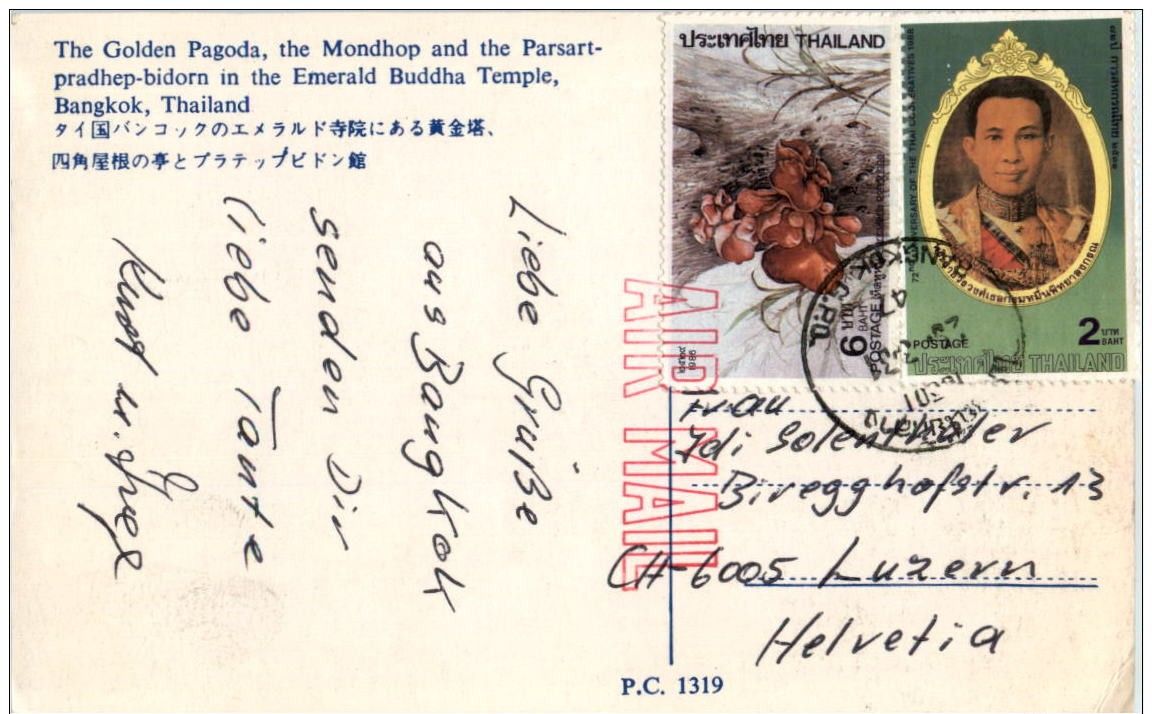 The Golden Pagoda, the Mondhop and the Parsart-
pradhep-bidorn in the Emerald Buddha Temple,
Bangkok, Thailand
タイ国バンコックのエメラルド寺院にある黄金塔、
四角屋根の亭とプラテップビドン館
Liebe Grüße
aus Bangkok
senden Dir
liebe Tante
ประเทศไทย THAILAND
1986
9 บาท BAHT
POSTAGE
72nd ANNIVERSARY OF THE THAI COOPERATIVES 1988
2 บาท BAHT
POSTAGE
ประเทศไทย THAILAND
BANGKOK
G.P.O.
AIR MAIL
Frau
Idi Solenthaler
Biregghofstr. 13
CH-6005 Luzern
Helvetia
P.C. 1319